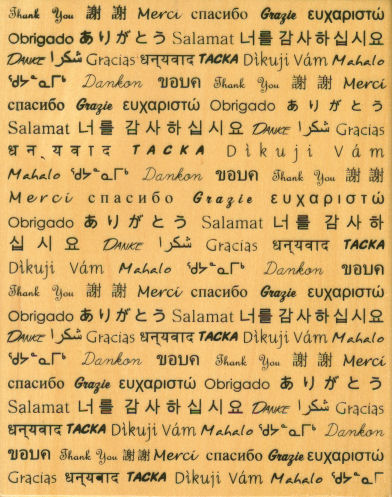 Thank You 謝 謝 Merci спасибо Grazie ευχαριστώ
Obrigado ありがとう Salamat 너를 감사하십시요
DANKE شكرا Gracias धन्यवाद TACKA Dìkuji Vám Mahalo
ᖁᔭᓐᓇᒥᒃ Dankon ขอบค Thank You 謝 謝 Merci
спасибо Grazie ευχαριστώ Obrigado ありがとう
Salamat 너를 감사하십시요 DANKE شكرا Gracias
धन्यवाद TACKA Dìkuji Vám
Mahalo ᖁᔭᓐᓇᒥᒃ Dankon ขอบค Thank You 謝 謝
Merci спасибо Grazie ευχαριστώ
Obrigado ありがとう Salamat 너를 감사하
십시요 DANKE شكرا Gracias धन्यवाद TACKA
Dìkuji Vám Mahalo ᖁᔭᓐᓇᒥᒃ Dankon ขอบค
Thank You 謝 謝 Merci спасибо Grazie ευχαριστώ
Obrigado ありがとう Salamat 너를 감사하십시요
DANKE شكرا Gracias धन्यवाद TACKA Dìkuji Vám Mahalo
ᖁᔭᓐᓇᒥᒃ Dankon ขอบค Thank You 謝 謝 Merci
спасибо Grazie ευχαριστώ Obrigado ありがとう
Salamat 너를 감사하십시요 DANKE شكرا Gracias
धन्यवाद TACKA Dìkuji Vám Mahalo ᖁᔭᓐᓇᒥᒃ Dankon
ขอบค Thank You 謝 謝 Merci спасибо Grazie ευχαριστώ
DANKE شكرا Gracias धन्यवाद TACKA Dìkuji Vám Mahalo
Gracias TACKA Dìkuji Vám Mahalo ᖁᔭᓐᓇᒥᒃ